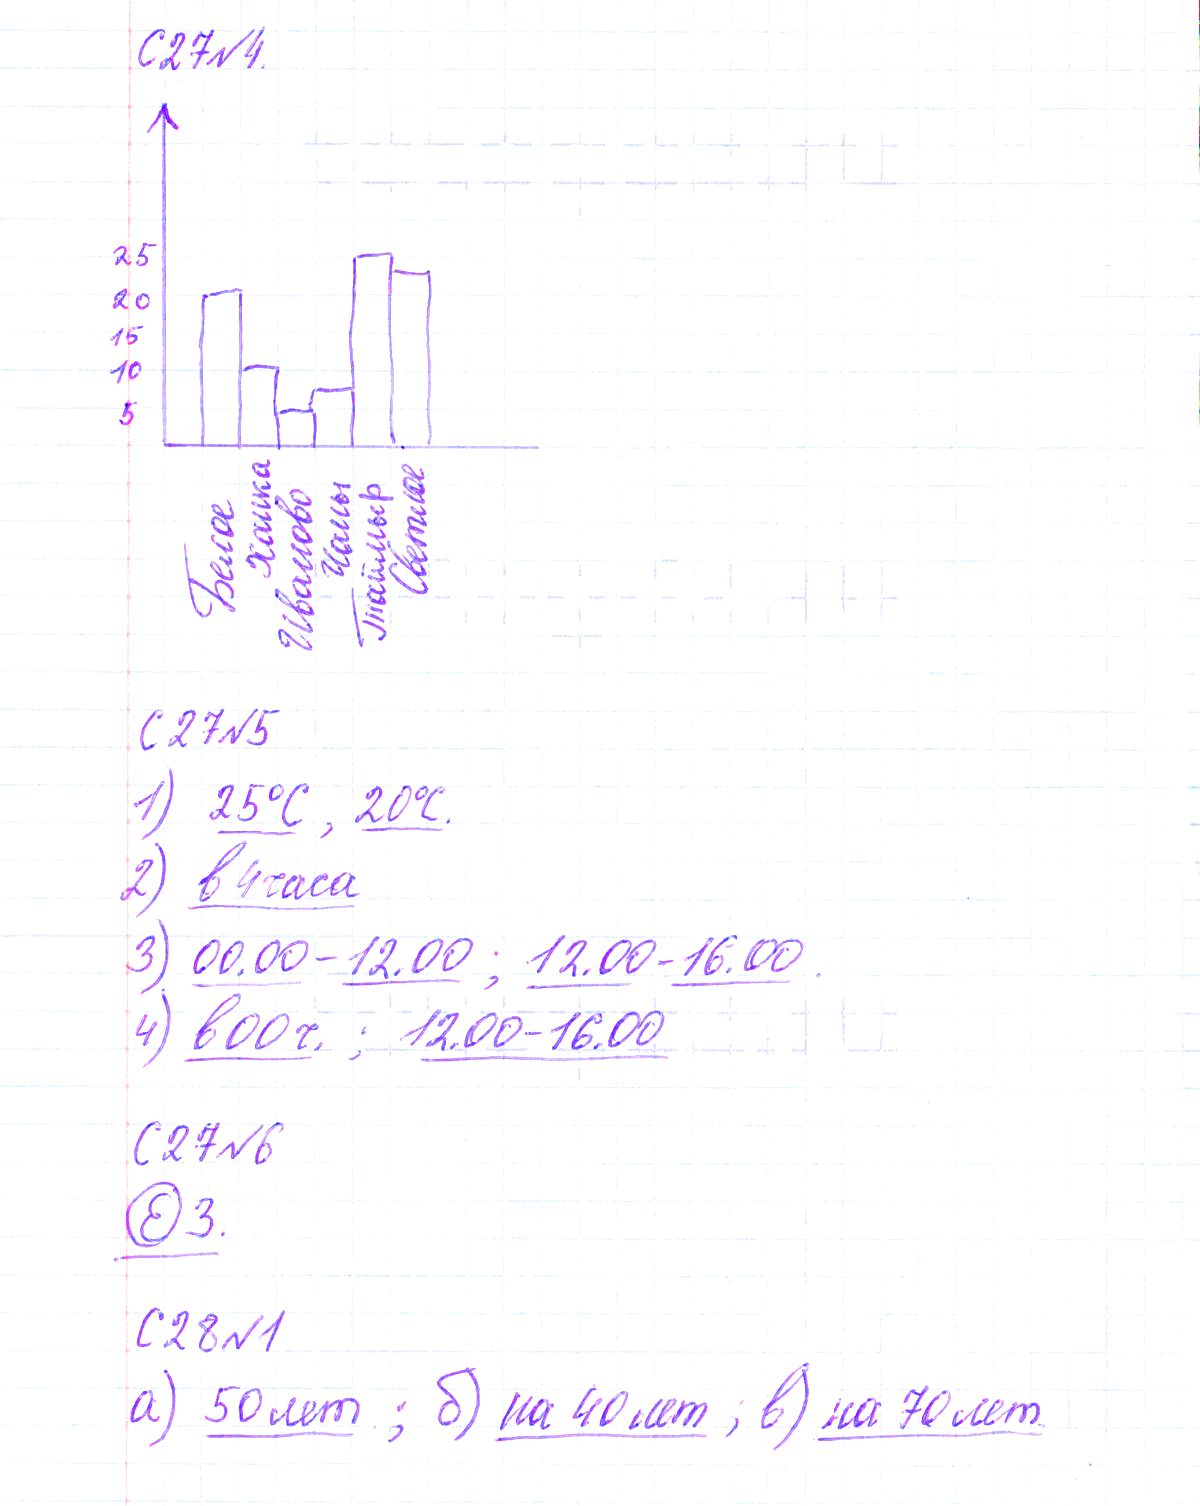 С27№4.
25
20
15
10
5
Белое
Ханка
Иваново
Чаны
Таймыр
Светлое
С27№5
1) 25°С, 20°С.
2) в 4 часа
3) 00.00-12.00; 12.00-16.00.
4) в 00 ч.; 12.00-16.00
С27№6
Ⓔ 3.
С28№1
а) 50 лет; б) на 40 лет; в) на 70 лет